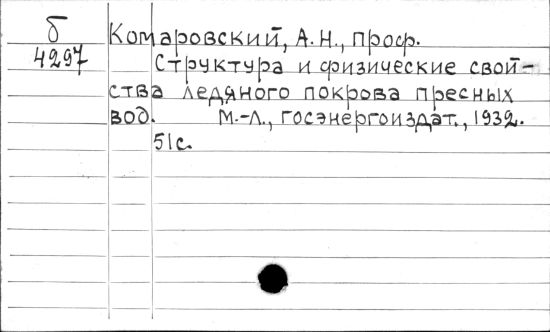 б
4297
Комаровский, А.Н., проф.
Структура и физические свой-
ства ледяного покрова пресных
вод. М.-Л., Госэнергоиздат., 1932.
51с.